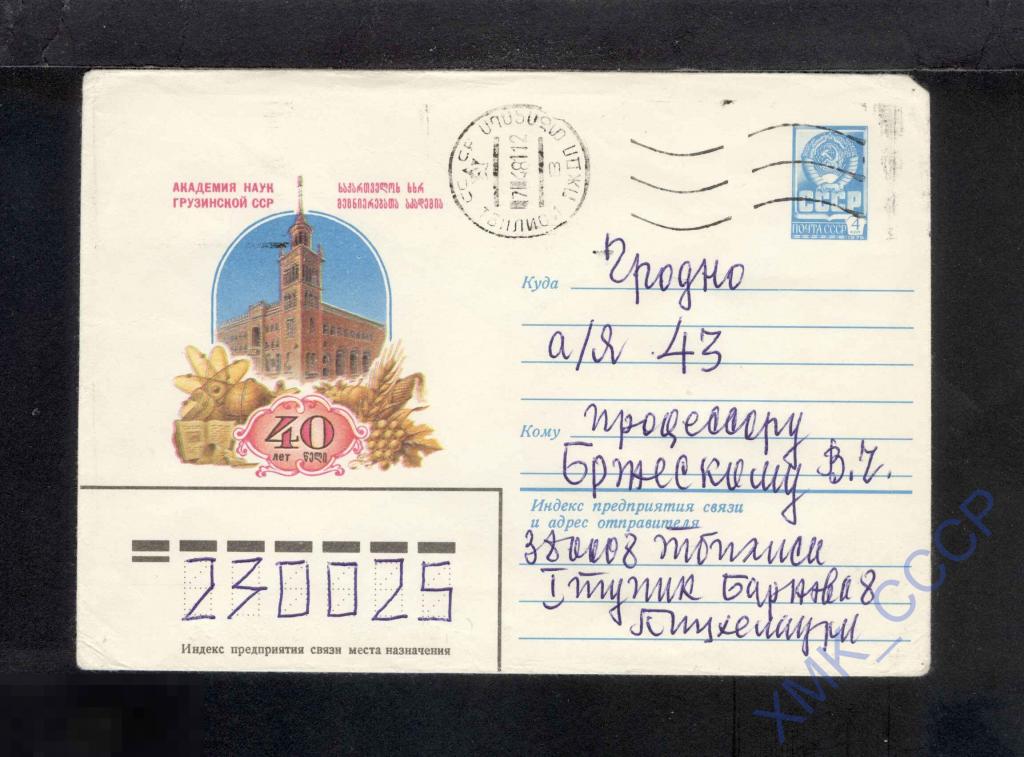 АКАДЕМИЯ НАУК
ГРУЗИНСКОЙ ССР
საქართველოს სსრ
მეცნიერებათა აკადემია
40
лет წელი
ТБИЛИСИ
ПОЧТА СССР
4
Куда Гродно
а/я 43
Кому Профессору
Бржескому В.Ч.
Индекс предприятия связи
и адрес отправителя
380008 Тбилиси
I тупик Барнова 8
230025
Индекс предприятия связи места назначения
ХМК_СССР